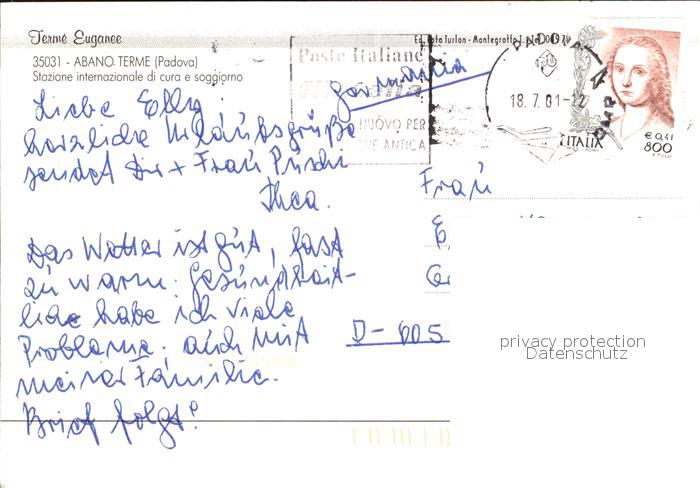 Terme Euganee
35031 - ABANO TERME (Padova)
Stazione internazionale di cura e soggiorno
Poste Italiane
NUOVO PER
ANTICA
18.7.01-12
ITALIA
€ 0,41
800
Liebe Elly!
herzliche Urlaubsgrüße
sendet Dir + Frau
Thea.
Das Wetter ist gut, fast
zu warm. Gesundheit-
liche habe ich viele
Probleme. auch mit
meiner Familie.
Brief folgt!
Germania
Frau
E,
D-605
privacy protection
Datenschutz